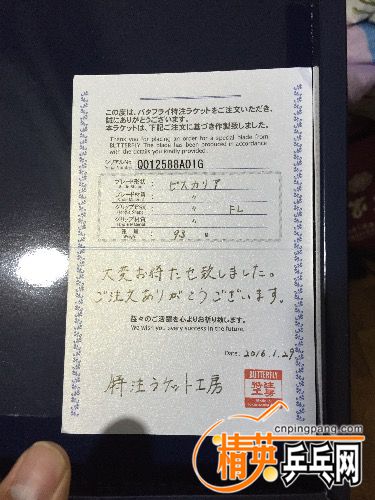 この度は、バタフライ特注ラケットをご注文いただき、
誠にありがとうございます。
本ラケットは、下記ご注文に基づき作製致しました。
Thank you for placing an order for a special blade from
BUTTERFLY. The blade has been produced in accordance
with the details you kindly provided.
シリアルNo. 0012588A01G
ブレード形状 ビスカリア
ブレード材質 〃
グリップ形状 〃 FL
グリップ材質 〃
重量 93 g
大変お待たせ致しました。
ご注文ありがとうございます。
益々のご活躍を心よりお祈り致します。
We wish you every success in the future.
Date: 2016.1.29
特注ラケット工房
BUTTERFLY
特注
工房
cnpingpang.com
精英乒乓网